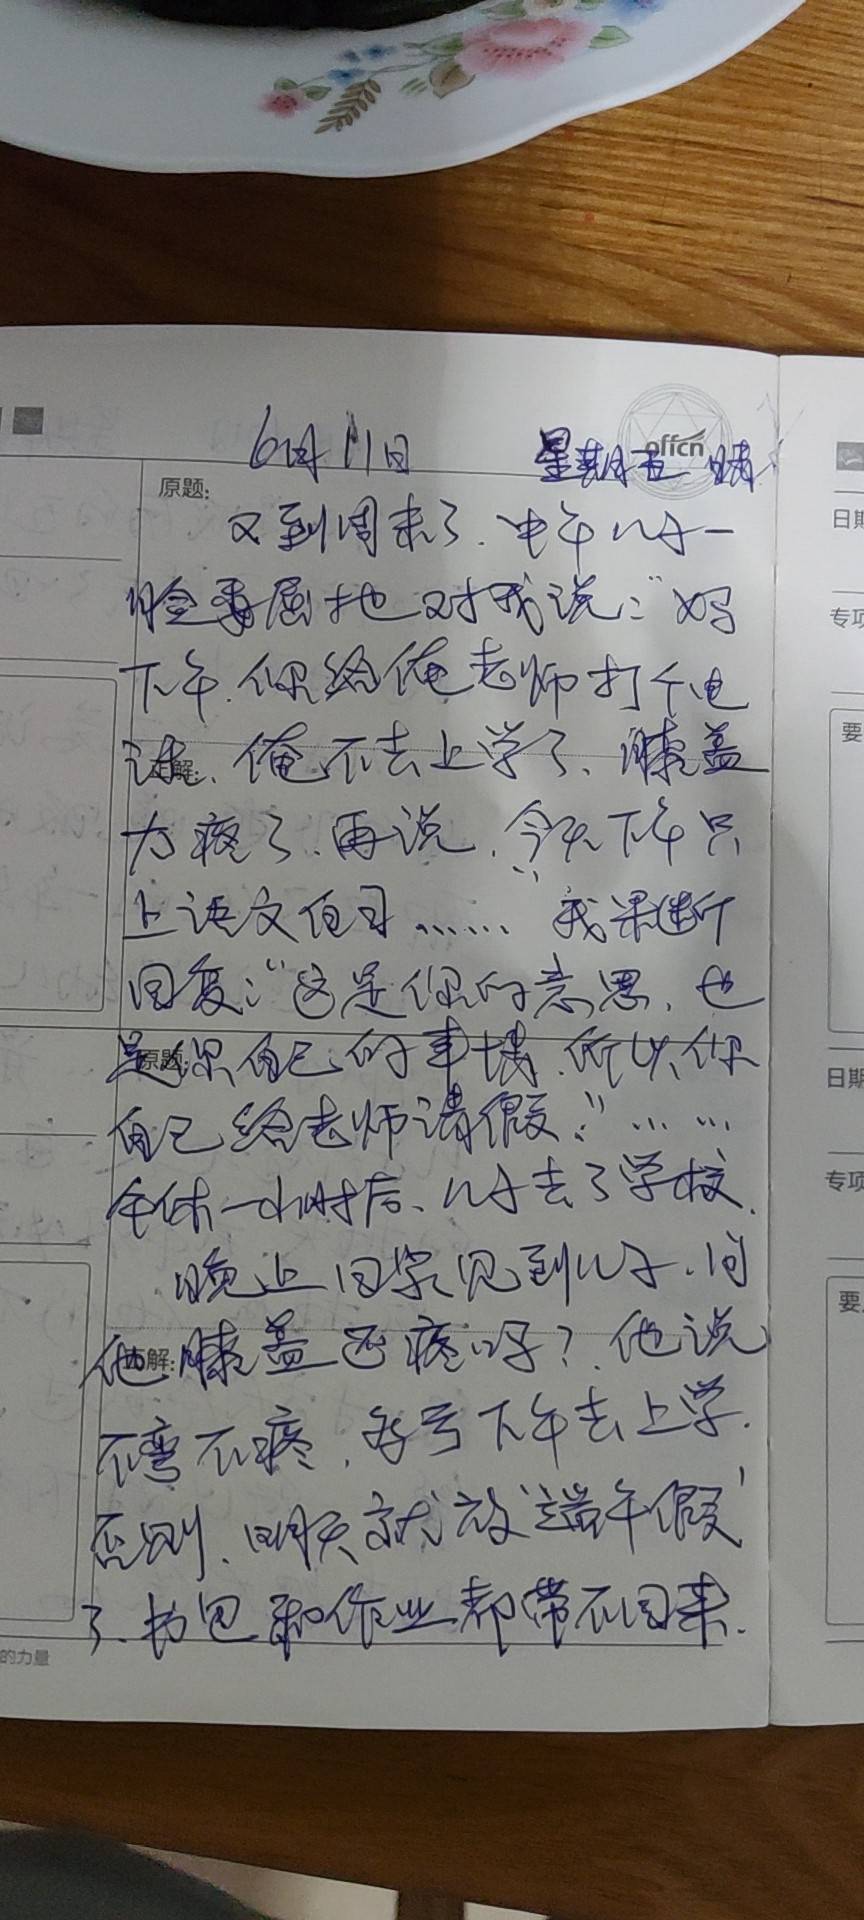 offcn
6月11日 星期五 晴
原题:
又到周末了.中午儿子一
脸委屈地对我说:“妈
下午.你给俺老师打个电
话、俺不去上学了、膝盖
正解:
疼了.再说.今天下午只
上语文自习……”我果断
回复:“这是你的意思.也
是你自己的事情.所以你
原题:
自己给老师请假.”……
午休一小时后、儿子去了学校.
晚上回家见到儿子.问
他膝盖还疼吗?他说
正解:
不弯不疼.多亏下午去上学.
否则、明天就放“端午假”
了、书包和作业都带不回来.
的力量
日期
专项
要
日期
专项
要